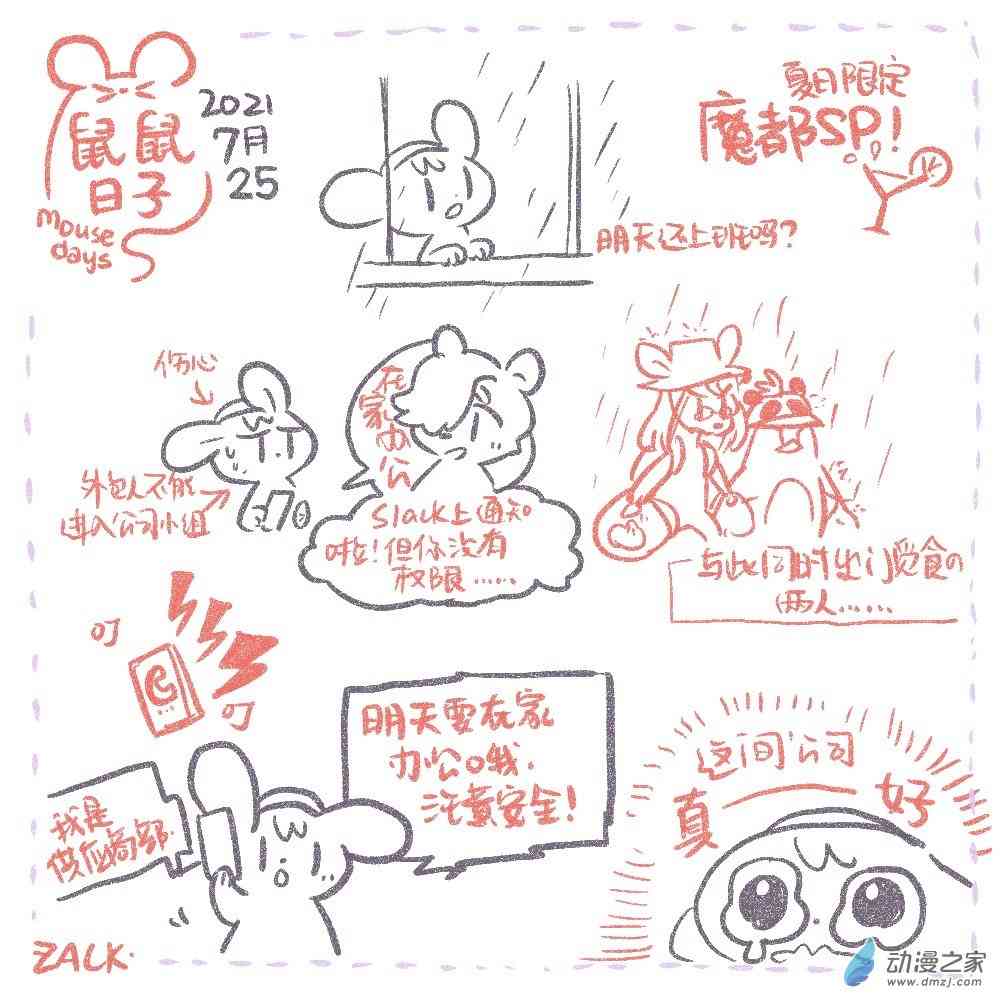 鼠鼠
日子
mouse
days
2021
7月
25
夏日限定
魔都SP!
明天还上班吗?
伤心
外包人不能
进入公司小组
在家办公
Slack上通知
啦!但你没有
权限……
与此同时出门觅食の
俩人……
叮
叮
我是
供应商部.
明天要在家
办公哦.
注意安全!
这间公司
真一好
ZALK.
动漫之家
www.dmzj.com